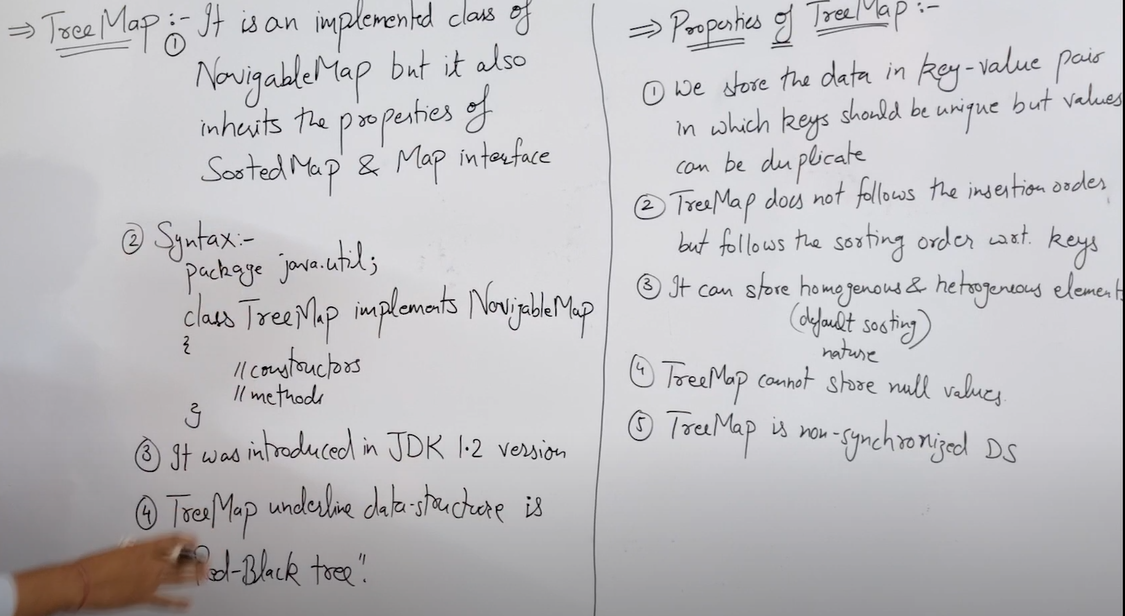 ⇒ TreeMap :- It is an implemented class of
①
NavigableMap but it also
inherits the properties of
SortedMap & Map interface
② Syntax:-
package java.util;
class TreeMap implements NavigableMap
{
//constructors
//methods
}
③ It was introduced in JDK 1.2 version
④ TreeMap underline data-structure is
"Red-Black tree".
⇒ Properties of TreeMap :-
① We store the data in key-value pair
in which keys should be unique but values
can be duplicate
② TreeMap does not follows the insertion order
but follows the sorting order wrt. keys
③ It can store homogenous & hetrogeneous element
(default sorting)
nature
④ TreeMap cannot store null values.
⑤ TreeMap is non-synchronized DS